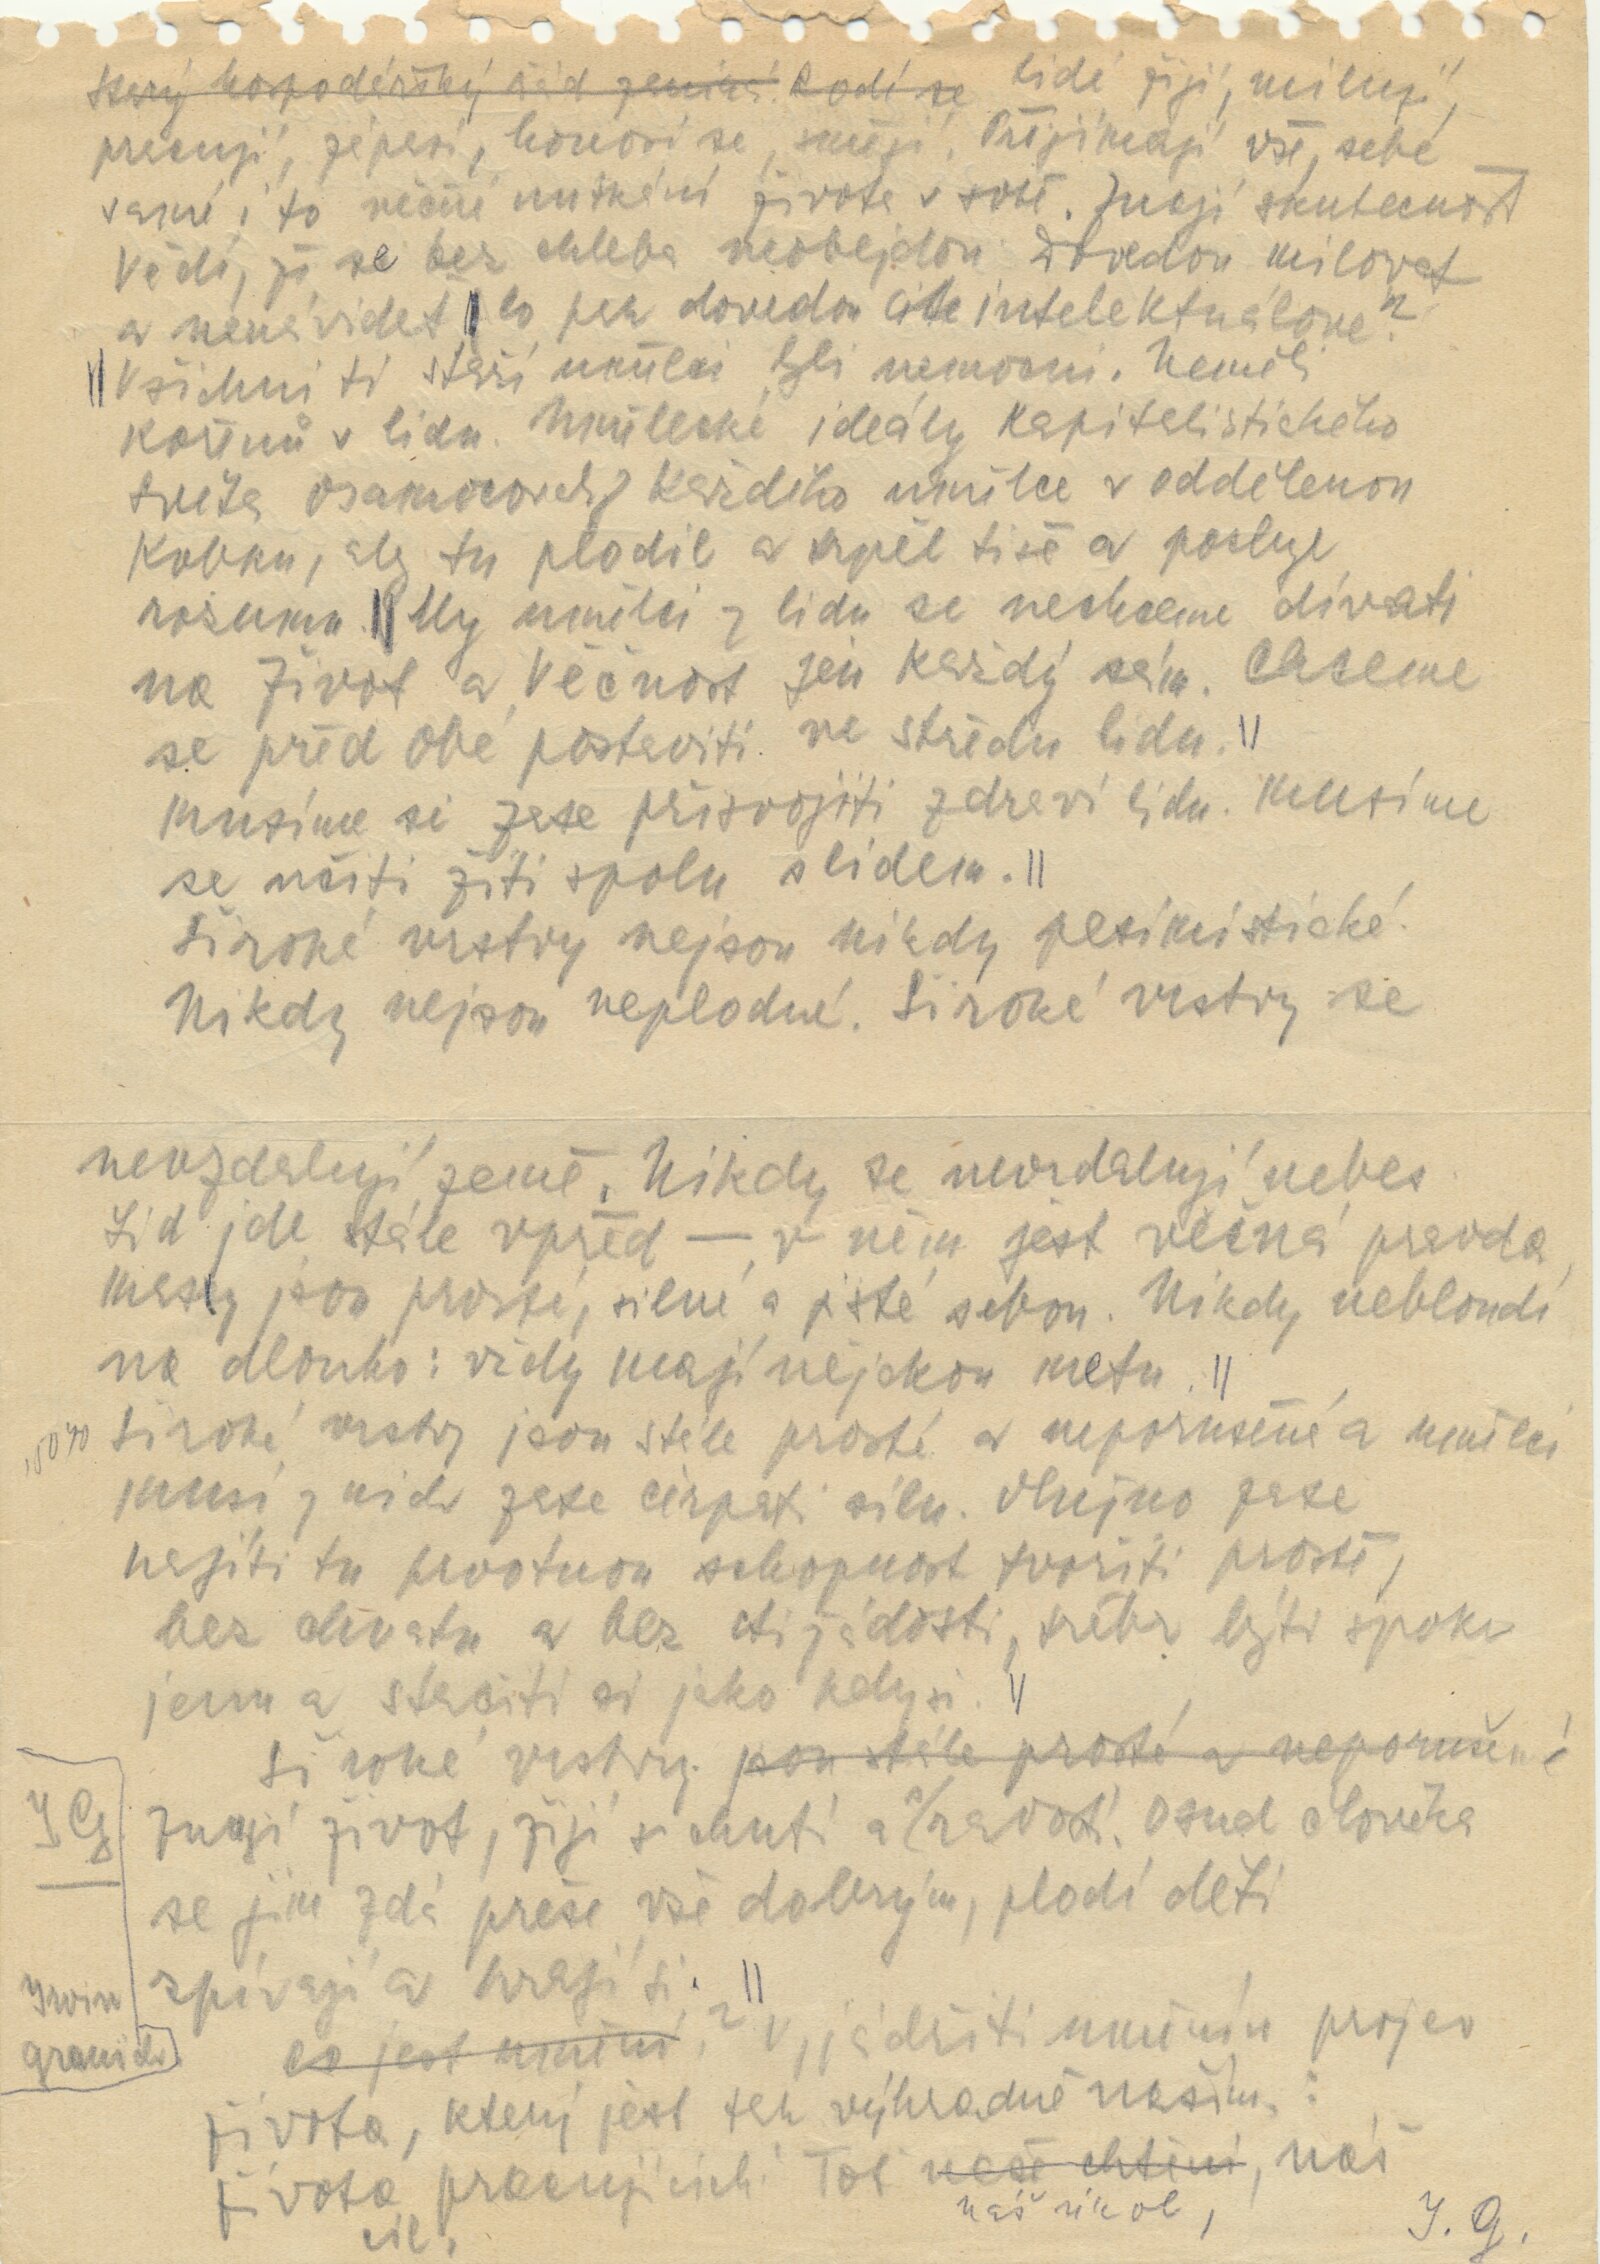 Starý hospodářský řád zaniká. Rodí se lidé žijí, milují,
pracují, zápasí, honosí se, smějí. Přijímají vše, sebe
samé i to věčné života v sobě. Znají skutečnost
Vědí, že se bez chleba neobejdou. Dovedou milovat
a nenávidet || Co pak dovedou intelektuálové?
|| Všichni ti staří umělci byli nemocni. Neměli
kořenů v lidu. Umělecké ideály kapitalistického
světa osamocovaly každého umělce v oddělenou
kobku, aby tu plodil a trpěl tiše a pozbyl
rozumu. || My umělci z lidu se nechceme dívati
na Život a Věčnost jen každý sám. Chceme
se před obé postaviti ve středu lidu. ||
Musíme si zase přisvojiti zdraví lidu. Musíme
se učiti žíti spolu s lidem. ||
Široké vrstvy nejsou nikdy pesimistické.
Nikdy nejsou neplodné. Široké vrstvy se
nevzdalují země. Nikdy se nevzdalují nebes
Lid jde stále vpřed — v něm jest věčná pravda,
masy jsou prosté, silné a jisté sebou. Nikdy nebloudí
na dlouho: vždy mají nějakou metu. ||
Široké vrstvy jsou stále prosté a neporušené a umělci
musí z nich zase čerpati sílu. Nutno zase
najíti tu prvotnou schopnost tvořiti prostě,
bez chvatu a bez ctižádosti, třeba býti spoko
jenu a stačiti si jako kdysi. ||
Široké vrstvy jsou stále prosté a neporušené
znají život, žijí s chutí a ravostí. Osud člověka
se jim zdá přese vše dobrým, plodí děti
zpívají a hrají si. ||
Co jest umění? Vyjádřiti uměním projev
života, který jest tak výhradně naším:
života pracujících! Toť naše chtění, náš
náš úkol,
cíl.
J. G.
JG
Irvin
granich